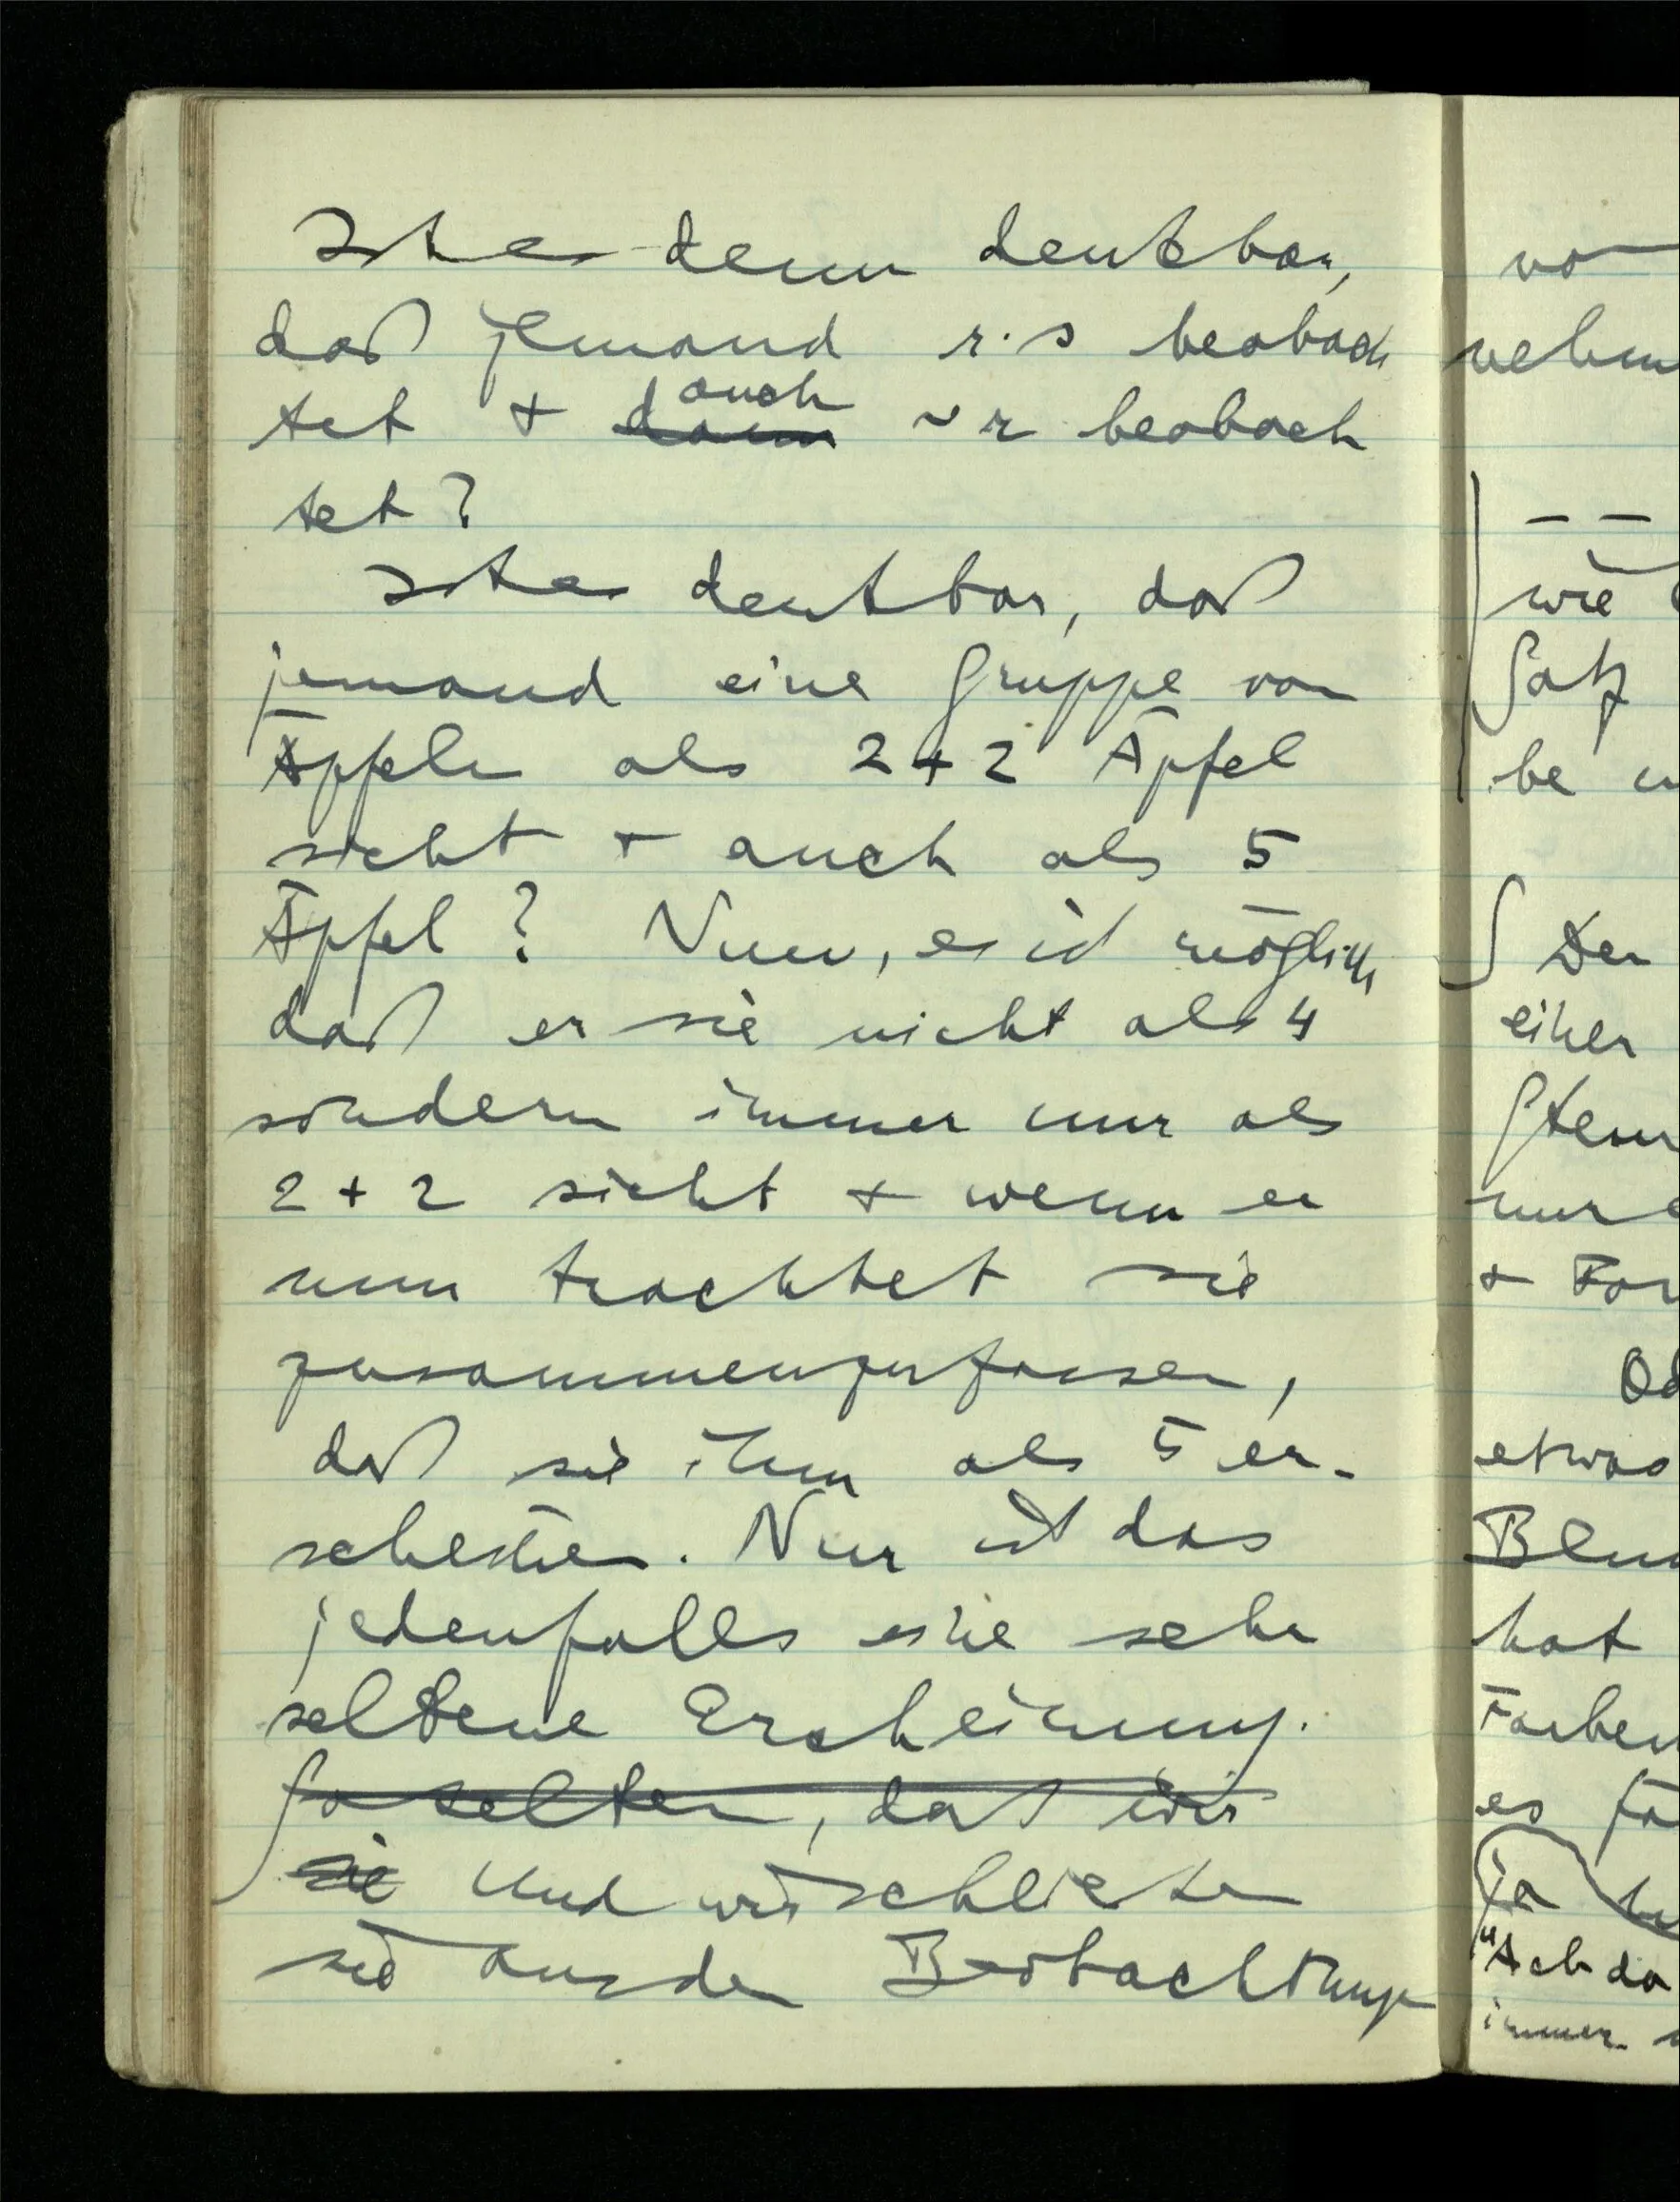 Ist es denn denkbar,
daß jemand r·s beobach
tet + dann auch ~r beobach
tet?
Ist es denkbar, daß
jemand eine Gruppe von
Äpfeln als 2+2 Äpfel
sieht + auch als 5
Äpfel? Nun, es ist möglich
daß er sie nicht als 4
sondern immer nur als
2+2 sieht + wenn er
nun trachtet sie
zusammenzufassen,
daß sie ihm als 5 er-
scheinen. Nur ist das
jedenfalls eine sehr
seltene Erscheinung.
So selten, daß wir
sie Und wir schließen
sie aus den Beobachtungen
vor
nehm
– –
wie
Satz
be
Der
einer
Stern
nur
+ For
Od
etwas
Blum
hat
Farben
es
Ja
"Ach da
immer